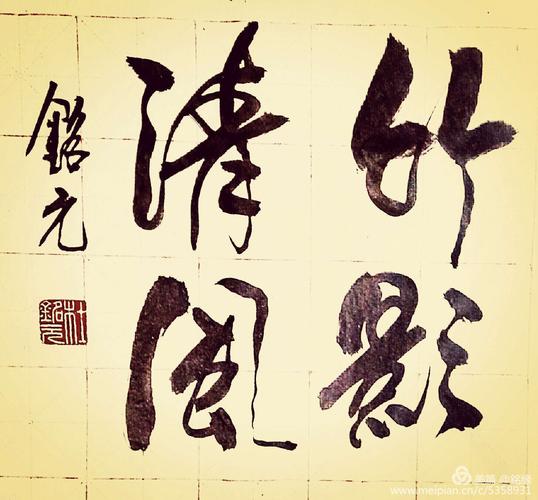 竹影
清風
銘元
杜銘元
美篇
www.meipian.cn/c/5358931